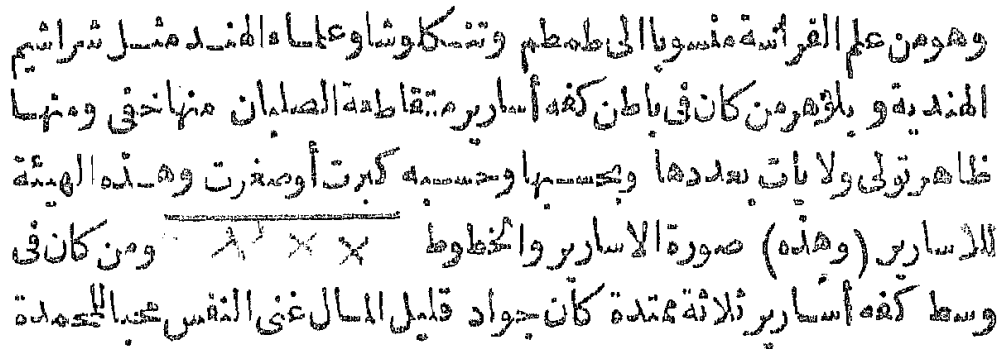 وهو من علم الفراسة منسوبا الى طمطم وتنكلوشا وعلماء الهند مثل شراشيم
الهندية و بلاؤهر من كان فى باطن كفه أسارير متقاطعة الصلبان منها خفى ومنها
ظاهر تولى ولايات بعددها وبحسبها وحسبه كبرت أو صغرت وهذه الهيئة
للاسارير (وهذه) صورة الاسارير والخطوط ومن كان فى
وسط كفه أسارير ثلاثة ممتدة كان جواد قليل المال غنى النفس محبا للمحمدة